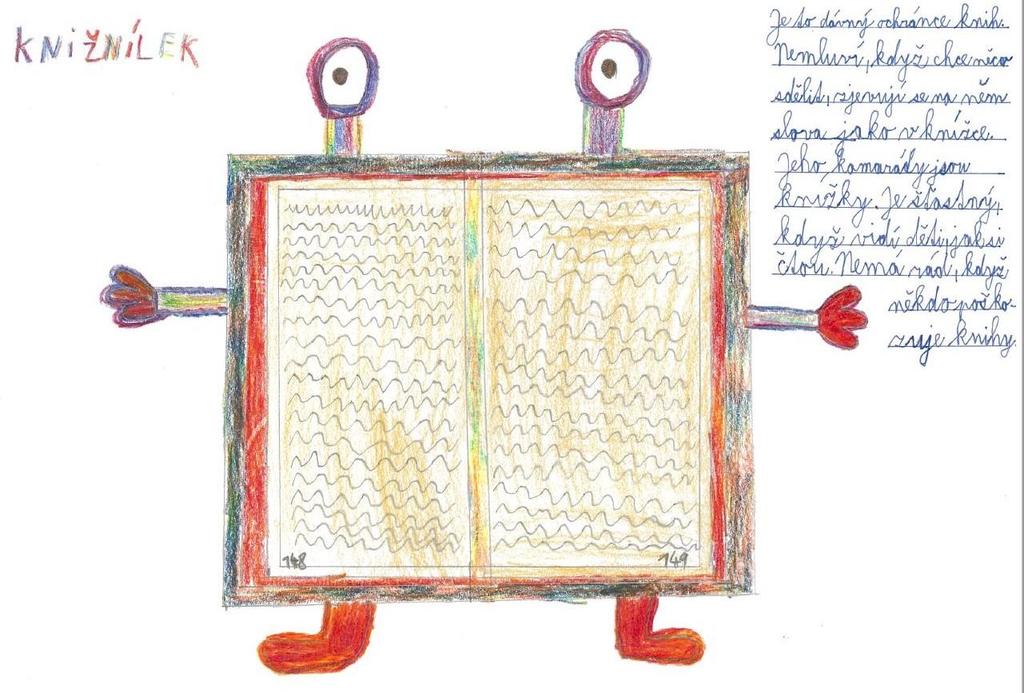 KNIŽNÍLEK
Je to dávný ochránce knih.
Nemluví, když chce něco
sdělit, zjevují se na něm
slova jako v knížce.
Jeho kamarády jsou
knížky. Je šťastný,
když vidí děti, jak si
čtou. Nemá rád, když
někdo poško-
zuje knihy.
148
149